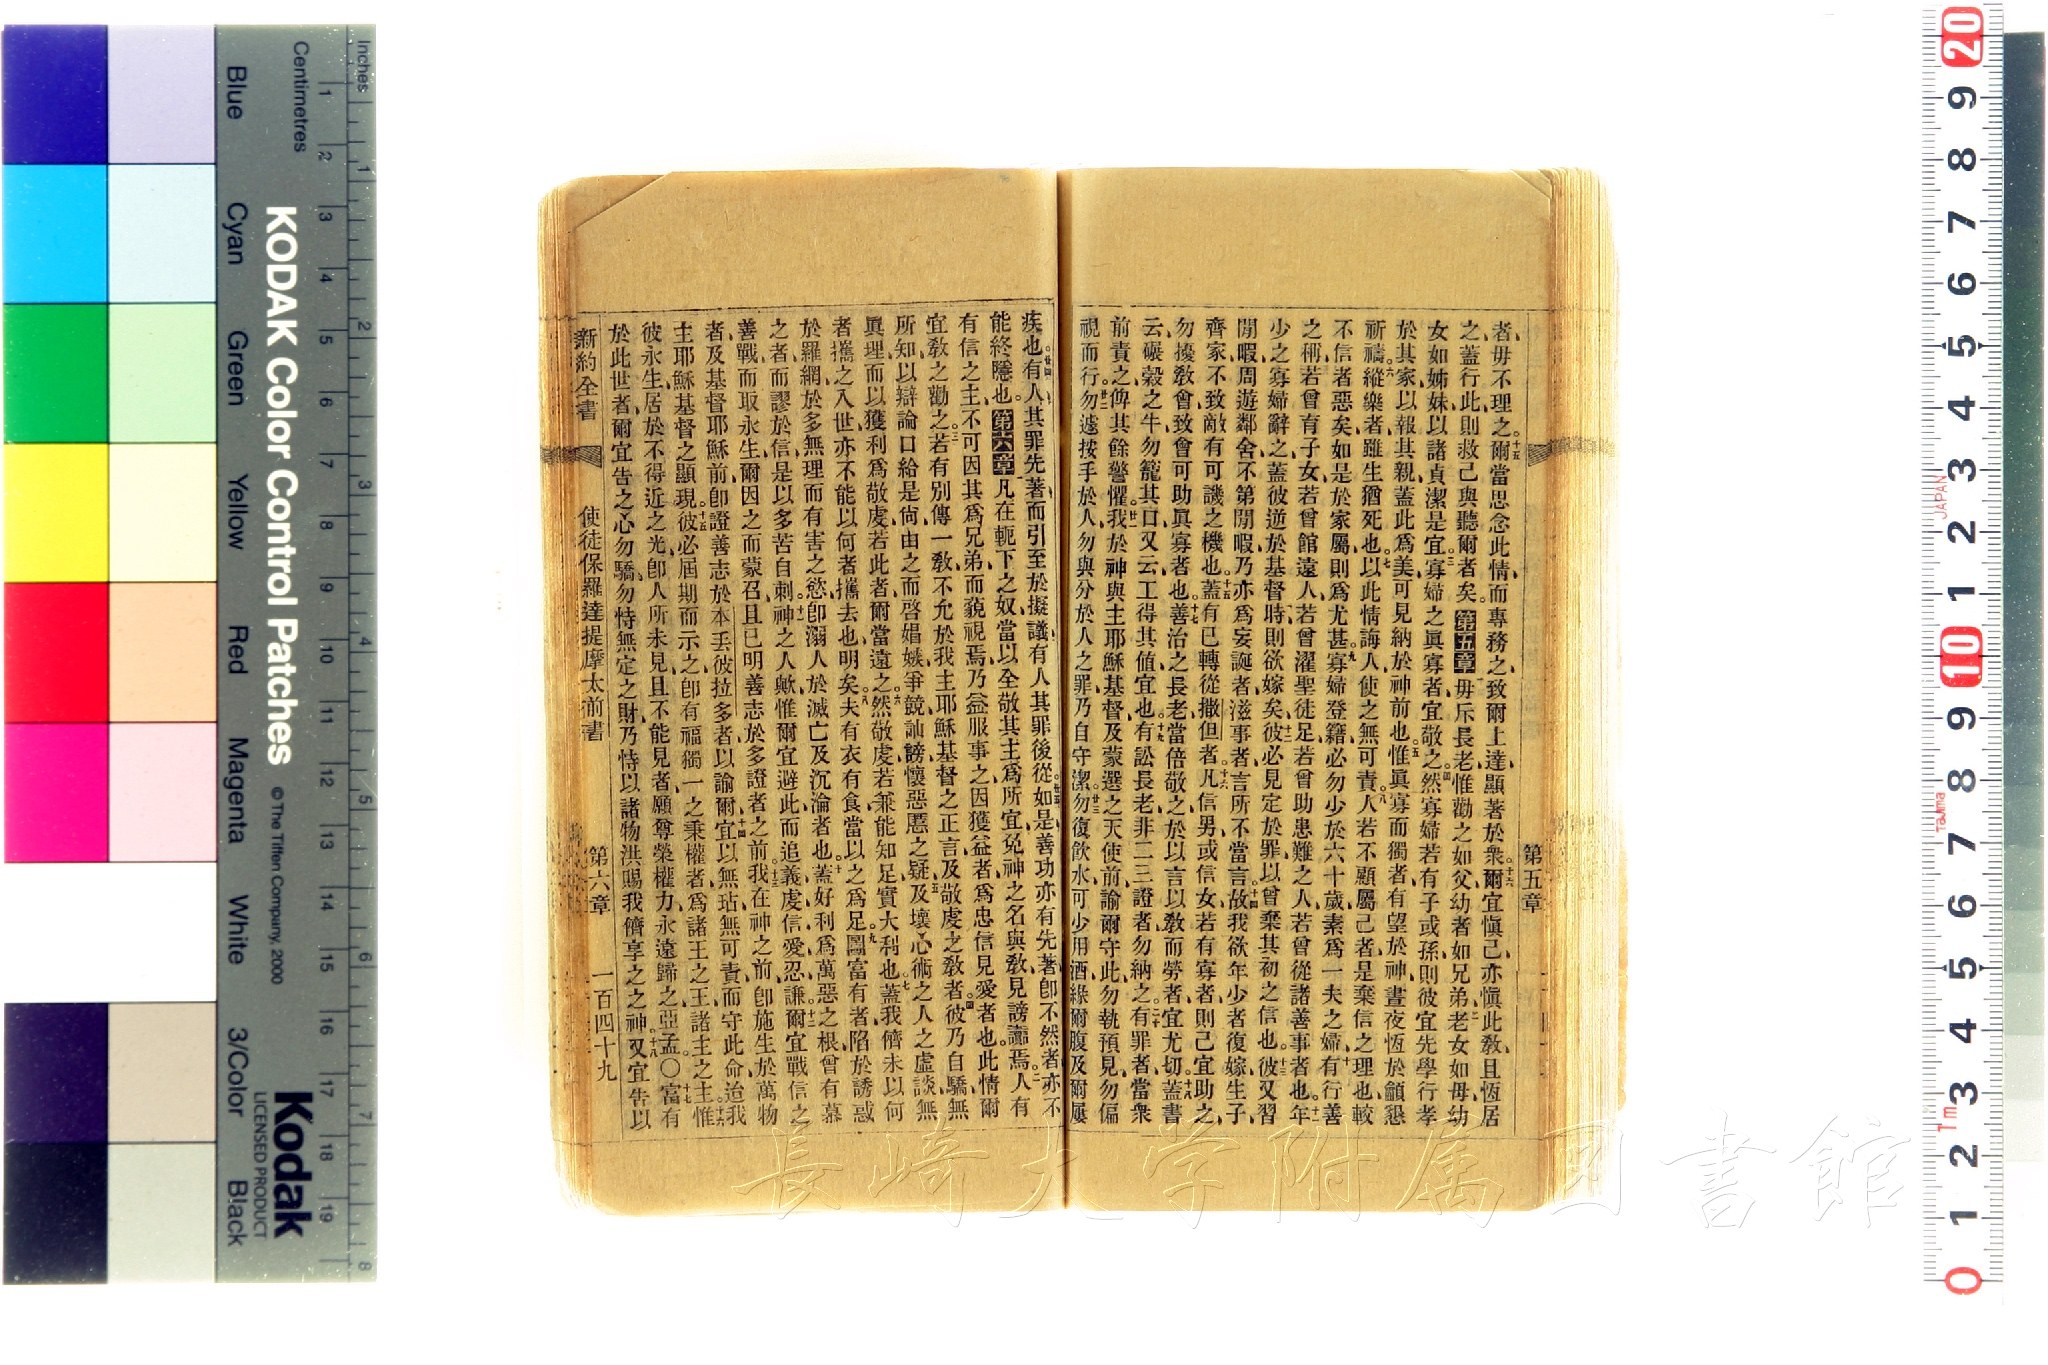 者毋不理之十五爾當思念此情而專務之致爾上達顯著於衆十六爾宜愼己亦愼此敎且恆居
之蓋行此則救己與聽爾者矣第五章一毋斥長老惟勸之如父幼者如兄弟二老女如母幼
女如姊妹以諸貞潔三是宜寡婦之眞寡者宜敬之四然寡婦若有子或孫則彼宜先學行孝
於其家以報其親蓋此爲美可見納於神前也五惟眞寡而獨者有望於神晝夜恆於籲懇
祈禱六縱樂者雖生猶死也七以此情誨人使之無可責八人若不顧屬己者是棄信之理也較
不信者惡矣如是於家屬則爲尤甚九寡婦登籍必勿少於六十歲素爲一夫之婦十有行善
之稱若曾育子女若曾館遠人若曾濯聖徒足若曾助患難之人若曾從諸善事者也十一年
少之寡婦辭之蓋彼逆於基督時則欲嫁矣十二彼必見定於罪以曾棄其初之信也十三彼又習
閒暇周遊鄰舍不第閒暇乃亦爲妄誕者滋事者言所不當言十四故我欲年少者復嫁生子
齊家不致敵有可譏之機也十五蓋有已轉從撒但者十六凡信男或信女若有寡者則己宜助之
勿擾敎會致會可助眞寡者也十七善治之長老當倍敬之於以言以敎而勞者宜尤切十八蓋書
云碾穀之牛勿籠其口又云工得其値宜也十九有訟長老非二三證者勿納之二十有罪者當衆
前責之俾其餘警懼廿一我於神與主耶穌基督及蒙選之天使前諭爾守此勿執預見勿偏
視而行廿二勿遽按手於人勿與分於人之罪乃自守潔廿三勿復飮水可少用酒緣爾腹及爾屢
第五章
疾也廿四有人其罪先著而引至於擬讞有人其罪後從廿五如是善功亦有先著卽不然者亦不
能終隱也第六章一凡在軛下之奴當以全敬其主爲所宜免神之名與敎見謗讟焉二人有
有信之主不可因其爲兄弟而藐視焉乃益服事之因獲益者爲忠信見愛者也此情爾
宜敎之勸之三若有別傳一敎不允於我主耶穌基督之正言及敬虔之敎者四彼乃自驕無
所知以辯論口給是尙由之而啓娼嫉爭競訕謗懷惡慝之疑五及壞心術之人之虛談無
眞理而以獲利爲敬虔若此者爾當遠之六然敬虔若兼能知足實大利也七蓋我儕未以何
者攜之入世亦不能以何者攜去也明矣八夫有衣有食當以之爲足九圖富有者陷於誘惑
於羅網於多無理而有害之慾卽溺人於滅亡及沉淪者也十蓋好利爲萬惡之根曾有慕
之者而謬於信是以多苦自刺十一神之人歟惟爾宜避此而追義虔信愛忍謙十二爾宜戰信之
善戰而取永生爾因之而蒙召且已明善志於多證者之前十三我在神之前卽施生於萬物
者及基督耶穌前卽證善志於本丟彼拉多者以諭爾十四宜以無玷無可責而守此命迨我
主耶穌基督之顯現十五彼必屆期而示之卽有福獨一之秉權者爲諸王之王諸主之主十六惟
彼永生居於不得近之光卽人所未見且不能見者願尊榮權力永遠歸之亞孟○十七富有
於此世者爾宜告之心勿驕勿恃無定之財乃恃以諸物洪賜我儕享之之神十八又宜告以
新約全書 使徒保羅達提摩太前書 第六章 一百四十九
Inches
Centimetres
KODAK Color Control Patches © The Tiffen Company, 2000
Kodak
LICENSED PRODUCT
Blue Cyan Green Yellow Red Magenta White 3/Color Black
JAPAN
Tajima
長崎大学附属図書館